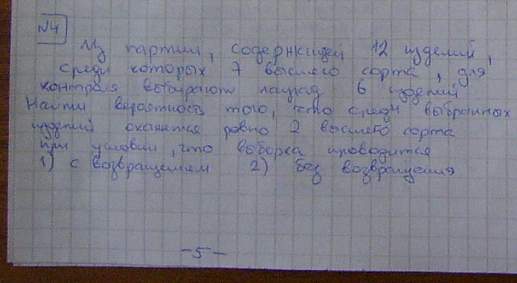 №4
Из партии, содержащей 12 изделий,
среди которых 7 высшего сорта, для
контроля выбирают наугад 6 изделий.
Найти вероятность того, что среди выбранных
изделий окажется ровно 2 высшего сорта
при условии, что выборка проводится
1) с возвращением 2) без возвращения
-5-